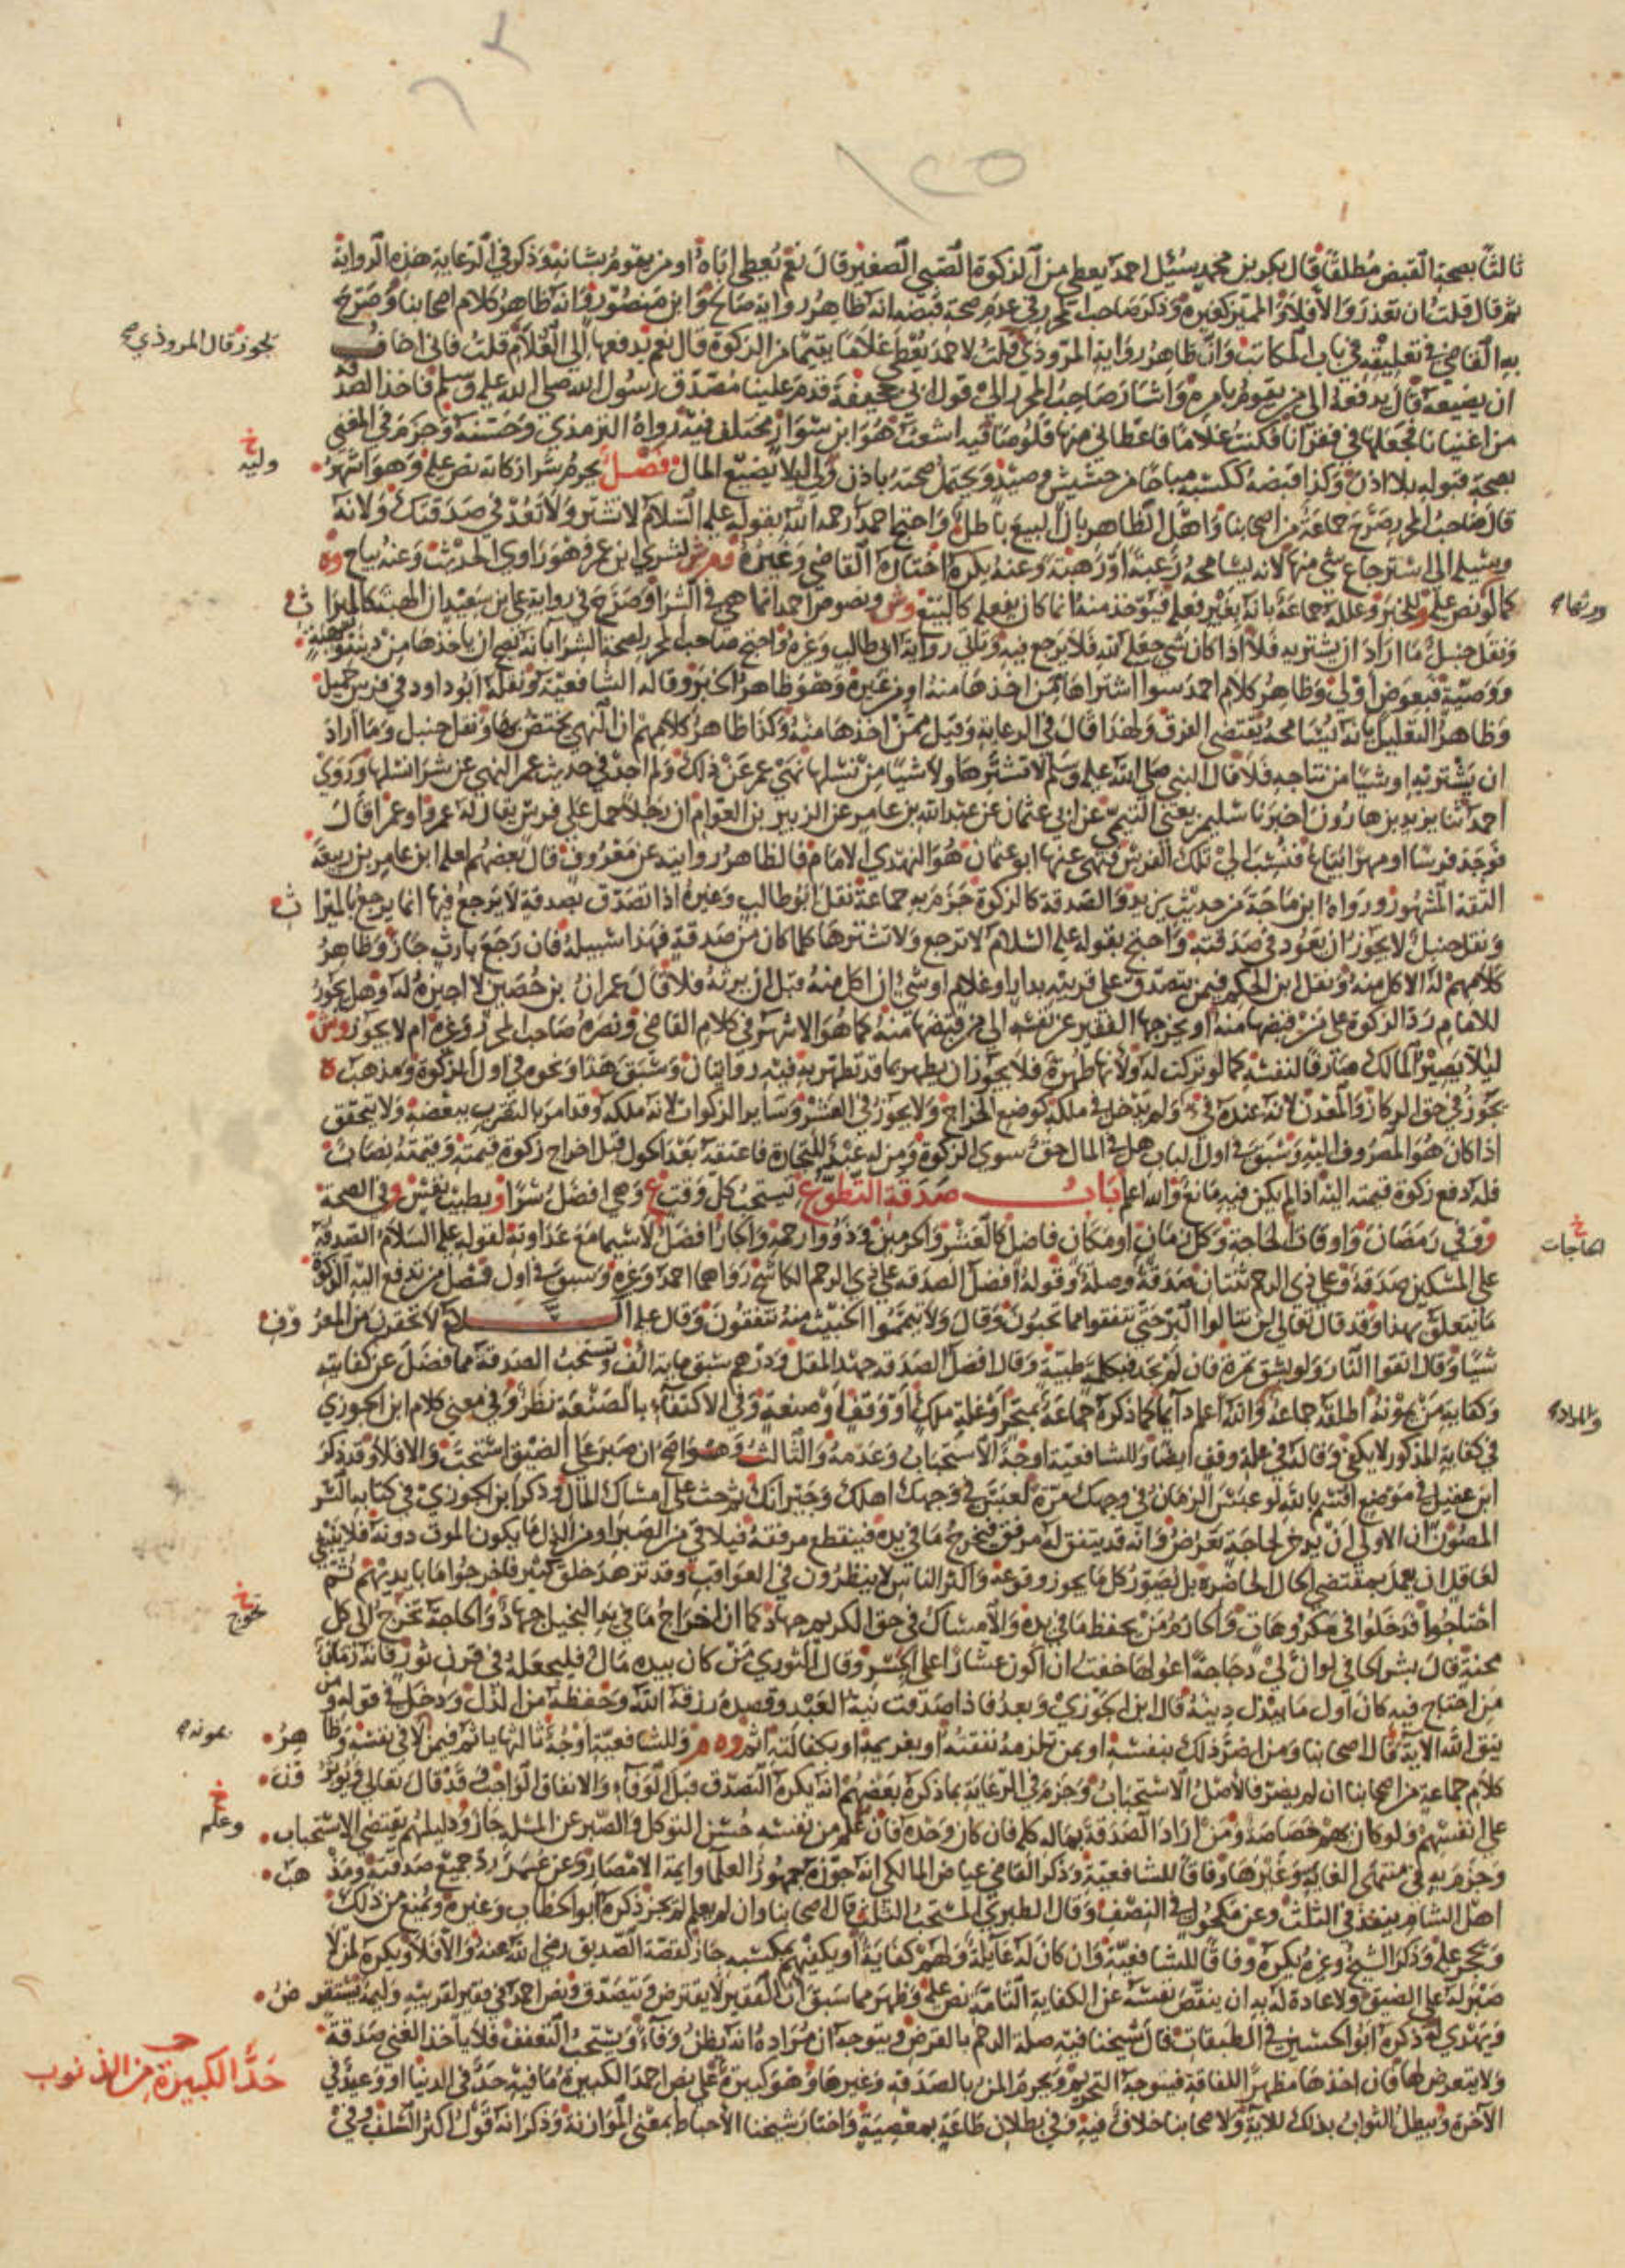 ١٢٥
ثالثا بصحة القبض مطلقا قال بكر بن محمد سئل احمد يعطى من الزكوة الصبي الصغير قال نعم يعطى اباه او من يقوم بشانه وذكر في الرعاية هذه الرواية
ثم قال قلت ان تعذر والا فلا والمميز كغيره وذكر صاحب المحرر في عدم صحة قبضه انه ظاهر رواية صالح وابن منصور وانه ظاهر كلام اصحابنا وصرح
به القاضي في تعليقه في باب المكاتب وان ظاهر رواية المروذي قلت لاحمد يعطى غلاما يتيما من الزكوة قال نعم يدفعها الى الغلام قلت فاني اخاف
يجوز قال المروذي صح
ان يضيعه قال يدفعه الى من يقوم بامره واشار صاحب المحرر الى قول ابي جحيفة قدم علينا مصدق رسول الله صلى الله عليه وسلم فاخذ الصدقة
من اغنيانا فجعلها في فقرانا فكنت غلاما فاعطاني منها قلوصا فيه اشعث هو ابن سوار مختلف فيه رواه الترمذي وحسنه وجزم في المغني
بصحة قبوله بلا اذن وكذا قبضه ككسبه مباحا من حشيش وصيد ويحتمل صحته باذن ولي لئلا يضيع المال فصل يحرم شرا زكاته نص عليه وهو اشهر
وليه خ
قال صاحب المحرر صرح جماعة من اصحابنا واهل الظاهر بان البيع باطل واحتج احمد رحمه الله بقوله عليه السلام لا تشتر ولا تعد في صدقتك ولانه
وسيلة الى استرجاع شي منها لانه يسامحه رغبة او رهبة وعنه يكره اختاره القاضي وغيره وم ش لشري ابن عمر وهو راوي الحديث وعنه يباح وه
كما لو نص عليه وللخبر وعلله جماعة بانه بغير فعله فيؤخذ منه انما كان بفعله كالبيع وش ونصوص احمد انما هي في الشرا وصرح في رواية علي بن سعيد ان الهبة كالميراث
ورثها صح
ونقل حنبل ما اراد ان يشتريه فلا اذا كان شي جعله لله فلا يرجع فيه وتاتي رواية ابي طالب وغيره واحتج صاحب المحرر لصحة الشرا بانه يصح ان ياخذها من دينه وهبة
ووصية فبعوض اولى وظاهر كلام احمد سوا اشتراها ممن اخذها منه او من غيره وهو ظاهر الخبر وقاله الشافعية ونقله ابو داود في فرس حميل
وظاهر التعليل بانه يسامحه يقتضي الفرق ولهذا قال في الرعاية وقيل ممن اخذها منه وكذا ظاهر كلامهم ان النهي يختص بها ونقل حنبل وما اراد
ان يشتريه او شيئا من نتاجه فلا قال النبي صلى الله عليه وسلم لا تشترها ولا شيئا من نسلها نهي عمر عن ذلك ولم اجد في حديث عمر النهي عن شرا نسلها وروى
احمد ثنا يزيد بن هارون اخبرنا سليمن يعني التيمي عن ابي عثمان عن عبد الله بن عامر عن الزبير بن العوام ان رجلا حمل على فرس يقال له غمرة او غمرا قال
فوجد فرسا او مهرا يباع فنسب الى تلك الفرس فنهي عنها ابو عثمان هو النهدي الامام فالظاهر روايته عن معروف قال بعضهم لعله ابن عامر بن ربيعة
الثقة المشهور ورواه ابن ماجة من حديث يزيد والصدقة كالزكوة جزم به جماعة نقل ابو طالب وغيره اذا تصدق بصدقة لا يرجع فيها انما يرجع بالميراث
ونقل حنبل لا يجوز ان يعود في صدقته واحتج بقوله عليه السلام لا ترجع ولا تشترها كلما كان من صدقة فهذا سبيله فان رجع بارث جاز وظاهر
كلامهم له الاكل منه ونقل ابن الحكم فيمن يتصدق على قريبه بدار او غلام او شي ان اكل منه قبل ان يرثه فلا قال عمران بن حصين لا اجيزه له وهل يجوز
للامام رد الزكوة على من قبضها منه او يخرجها الفقير عن نفسه الى من قبضها منه كما هو الاشهر في كلام القاضي ونصره صاحب المحرر وغيره ام لا يجوز وش
لئلا يصير المالك صارفا لنفسه كما لو تركت له ولانها طهرة فلا يجوز ان يطهر بما قد تطهر به فيه روايتان وسبق هذا ونحوه في اول الزكوة ومذهب ه
يجوز في حق الركاز والمعدن لانه عنده فيء ولم يدخل في ملكه كوضع الخراج ولا يجوز في العشر وساير الزكوات لانه ملكه وقد امر بالتقرب ببعضه ولا يتحقق
اذا كان هو المصروف اليه وسبق في اول الباب هل في المال حق سوى الزكوة ومن له عبد للتجارة فاعتقه بعد الحول قبل اخراج زكوة قيمته وقيمته نصاب
فله دفع زكوة قيمته اليه اذا لم يكن فيه مانع والله اعلم باب صدقة التطوع تستحب كل وقت ع وهي افضل سرا وبطيب نفس وفي الصحة
وو في رمضان واوقات الحاجة وكل زمان او مكان فاضل كالعشر والحرمين و ذوو ارحمة والجار افضل لا سيما مع عداوته لقوله عليه السلام الصدقة
الحاجات خ
على المسكين صدقة وعلى ذي الرحم ثنتان صدقة وصلة وقوله افضل الصدقة على ذي الرحم الكاشح رواهما احمد وغيره وسبق في اول فصل من تدفع اليه الزكوة
ما يتعلق بهذا وقد قال تعالى لن تنالوا البر حتى تنفقوا مما تحبون وقال ولا تيمموا الخبيث منه تنفقون وقال عليه السلام لا تحقرن من المعروف
شيئا وقال اتقوا النار ولو بشق تمرة فان لم يجد فبكلمة طيبة وقال افضل الصدقة جهد المقل ودرهم سبق ماية الف وتستحب الصدقة مما فضل عن كفايته
وكفاية من يمونه اطلقه جماعة والله اعلم دايما كما ذكره جماعة بمتجر او غلة ملك او وقف او صنعة وفي الاكتفاء بالصنعة نظر وفي معنى كلام ابن الجوزي
والمراد صح
في كفاية المذكور لا يكفي وقاله في غلة وقف ايضا وللشافعية اوجه الاستحباب وعدمه والثالث وهو اصح ان صبر على الضيق استحب والا فلا وقد ذكر
ابن عقيل في موضع اقسم بالله لو عبس الزمان في وجهك مرة لعبس في وجهك اهلك وجيرانك ثم حث على امساك المال وذكر ابن الجوزي في كتابه السر
المصون ان الاولى ان يدخر لحاجة تعرض وانه قد يتفق له مرفق فيخرج ما في يده فينقطع مرفقه فيلاقي من الضر او من الذل ما يكون الموت دونه فلا ينبغي
لعاقل ان يعمل بمقتضى الحال الحاضرة بل يصور كل ما يجوز وقوعه واكثر الناس لا ينظرون في العواقب وقد تزهد خلق كثير فاخرجوا ما بايديهم ثم
احتاجوا فدخلوا في مكروهات والحازم من يحفظ ما في يده والامساك في حق الكريم جهاد كما ان اخراج ما في يد البخيل جهاد والحاجة تخرج الى كل
تحوج خ
محنة قال بشر الحافي لو ان لي دجاجة اعولها خفت ان اكون عشارا على الجسر وقال الثوري من كان بيده مال فليجعله في قرن ثور فانه زمان
من احتاج فيه كان اول ما يبذل دينه قال ابن الجوزي وبعد فاذا صدقت نية العبد وقصده رزقه الله وحفظه من الذل ودخل في قوله ومن
يتق الله الاية قال اصحابنا ومن اضر ذلك بنفسه او بمن تلزمه نفقته او بغريمه او بكفالته اثم وه م وللشافعية اوجه ثالثها ياثم فيمن لا في نفسه وظاهر
بمونه صح
كلام جماعة من اصحابنا ان لم يضر فالاصل الاستحباب وجزم في الرعاية بما ذكره بعضهم انه يكره التصدق قبل الوفاء والانفاق الواجب وقد قال تعالى ويؤثرون
على انفسهم ولو كان بهم خصاصة ومن اراد الصدقة بماله كله فان كان وحده فان علم من نفسه حسن التوكل والصبر عن المسلة جاز ودليلهم يقتضي الاستحباب
وعلم خ
وجزم به في منتهى الغاية وغيرها وفاقا للشافعية وذكر القاضي عياض المالكي انه جوزه جمهور العلما وايمة الامصار وعن عمر رد جميع صدقته ومذهب
اهل الشام ينفذ في الثلث وعن مكحول في النصف وقال الطبري المستحب الثلث قال اصحابنا وان لم يعلم لم يجز ذكره ابو الخطاب وغيره ويمنع من ذلك
ويحجر عليه وذكر الشيخ وغيره يكره وفاقا للشافعية وان كان له عايلة ولهم كفاية او يكفيهم بمكسبه جاز لقصة الصديق رضي الله عنه والا فلا ويكره لمن لا
صبر له على الضيق ولا عادة له به ان ينقص نفسه عن الكفاية التامة نص عليه وظهر مما سبق ان الفقير لا يقترض ويتصدق ونص احمد في فقير لقريبه وليمة يستقرض
ويهدي له ذكره ابو الحسين في الطبقات قال شيخنا فيه صلة الرحم بالقرض ويتوجه ان مراده انه يظن وفاء ويستحب التعفف فلا ياخذ الغني صدقة
ولا يتعرض لها فان اخذها مظهرا للفاقة فيتوجه التحريم ويحرم المن بالصدقة وغيرها وهو كبيرة على نص احمد الكبيرة ما فيه حد في الدنيا او وعيد في
حد الكبيرة من الذنوب
الاخرة ويبطل الثواب بذلك للاية ولاصحابنا خلاف فيه وفي بطلان طاعة بمعصية واختار شيخنا الاحباط بمعنى الموازنة وذكر انه قول اكثر السلف وفي